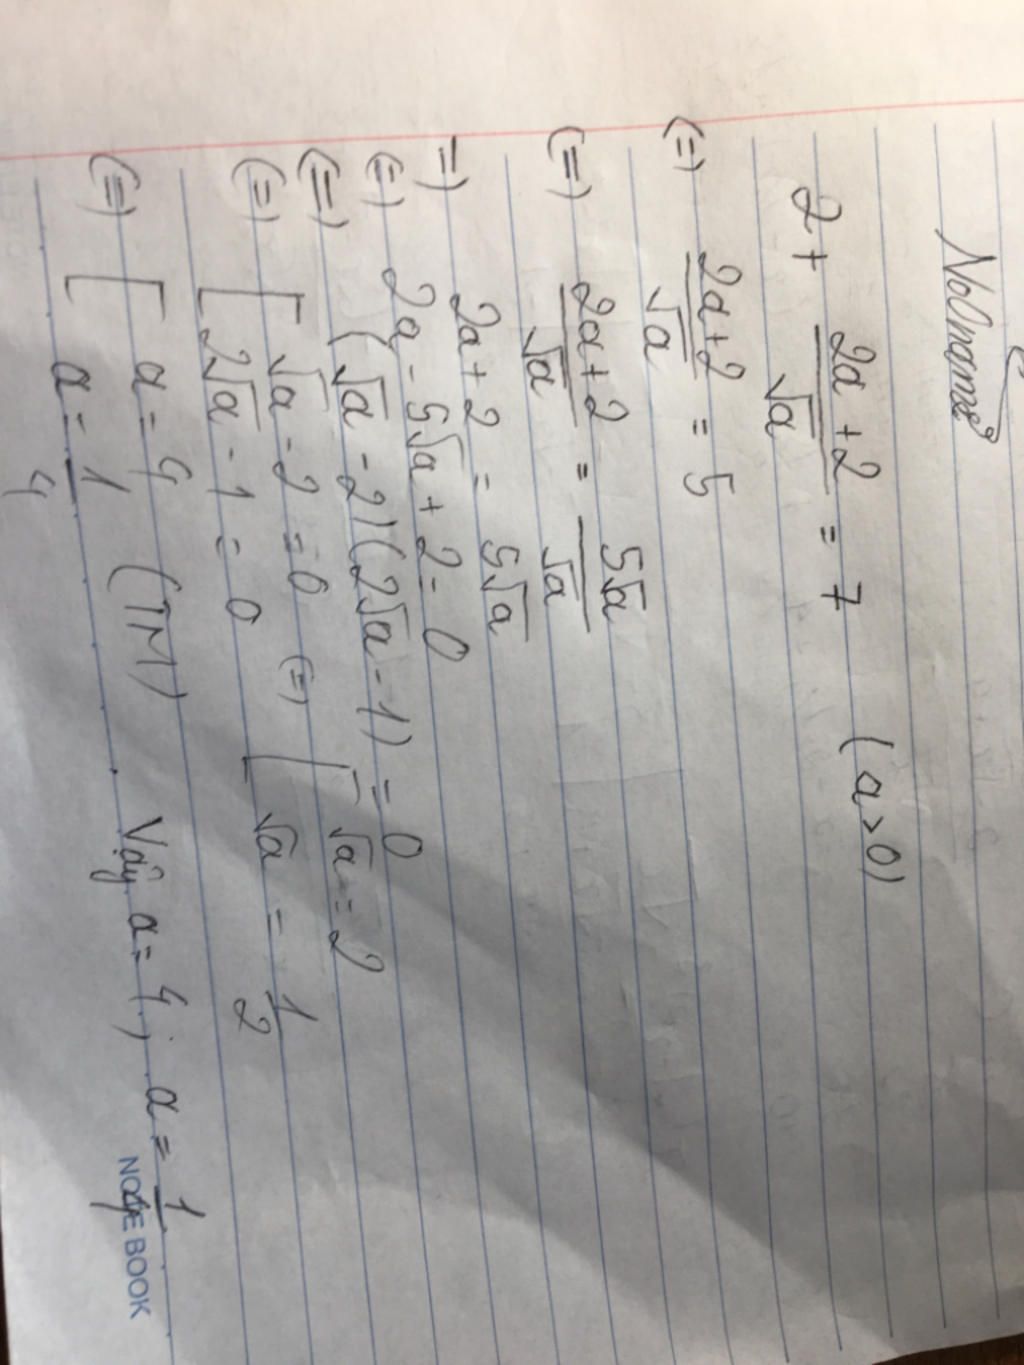 Nolname
2 + (2a + 2)/√a = 7 (a > 0)
(=) (2a + 2)/√a = 5
(=) (2a + 2)/√a = 5√a/√a
=) 2a + 2 = 5√a
(=) 2a - 5√a + 2 = 0
(=) (√a - 2)(2√a - 1) = 0
(=) [ √a - 2 = 0 (=) [ √a = 2
2√a - 1 = 0 √a = 1/2
(=) [ a = 4 (TM) Vậy a = 4 ; a = 1/4
a = 1/4
NOTE BOOK